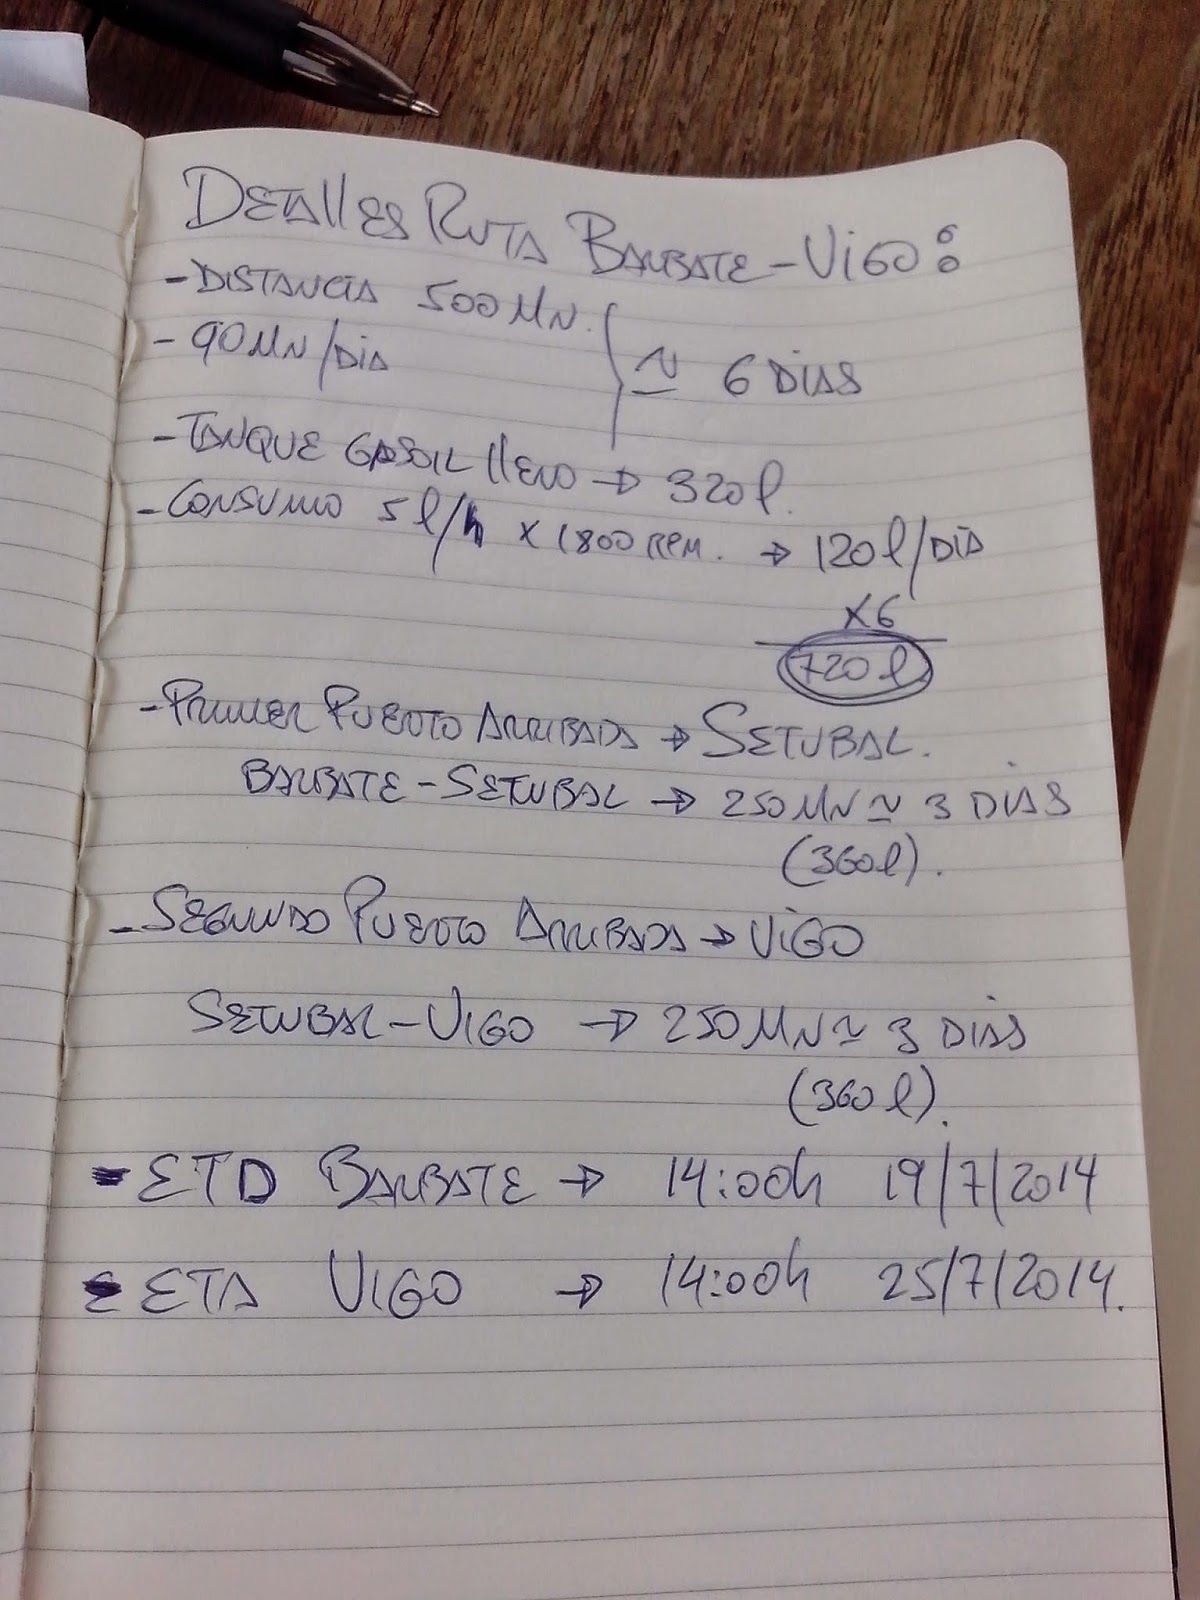 DETALLES RUTA BARBATE-VIGO:
- DISTANCIA 500 MN.
- 90 MN/DIA
≃ 6 DIAS
- TANQUE GASOIL LLENO → 320 l.
- CONSUMO 5 l/h x 1800 RPM. → 120 l/DIA
x6
720 l.
- PRIMER PUERTO ARRIBADA → SETUBAL.
BARBATE-SETUBAL → 250 MN ≃ 3 DIAS
(360 l).
- SEGUNDO PUERTO ARRIBADA → VIGO
SETUBAL-VIGO → 250 MN ≃ 3 DIAS
(360 l).
- ETD BARBATE → 14:00h 19/7/2014
- ETA VIGO → 14:00h 25/7/2014.